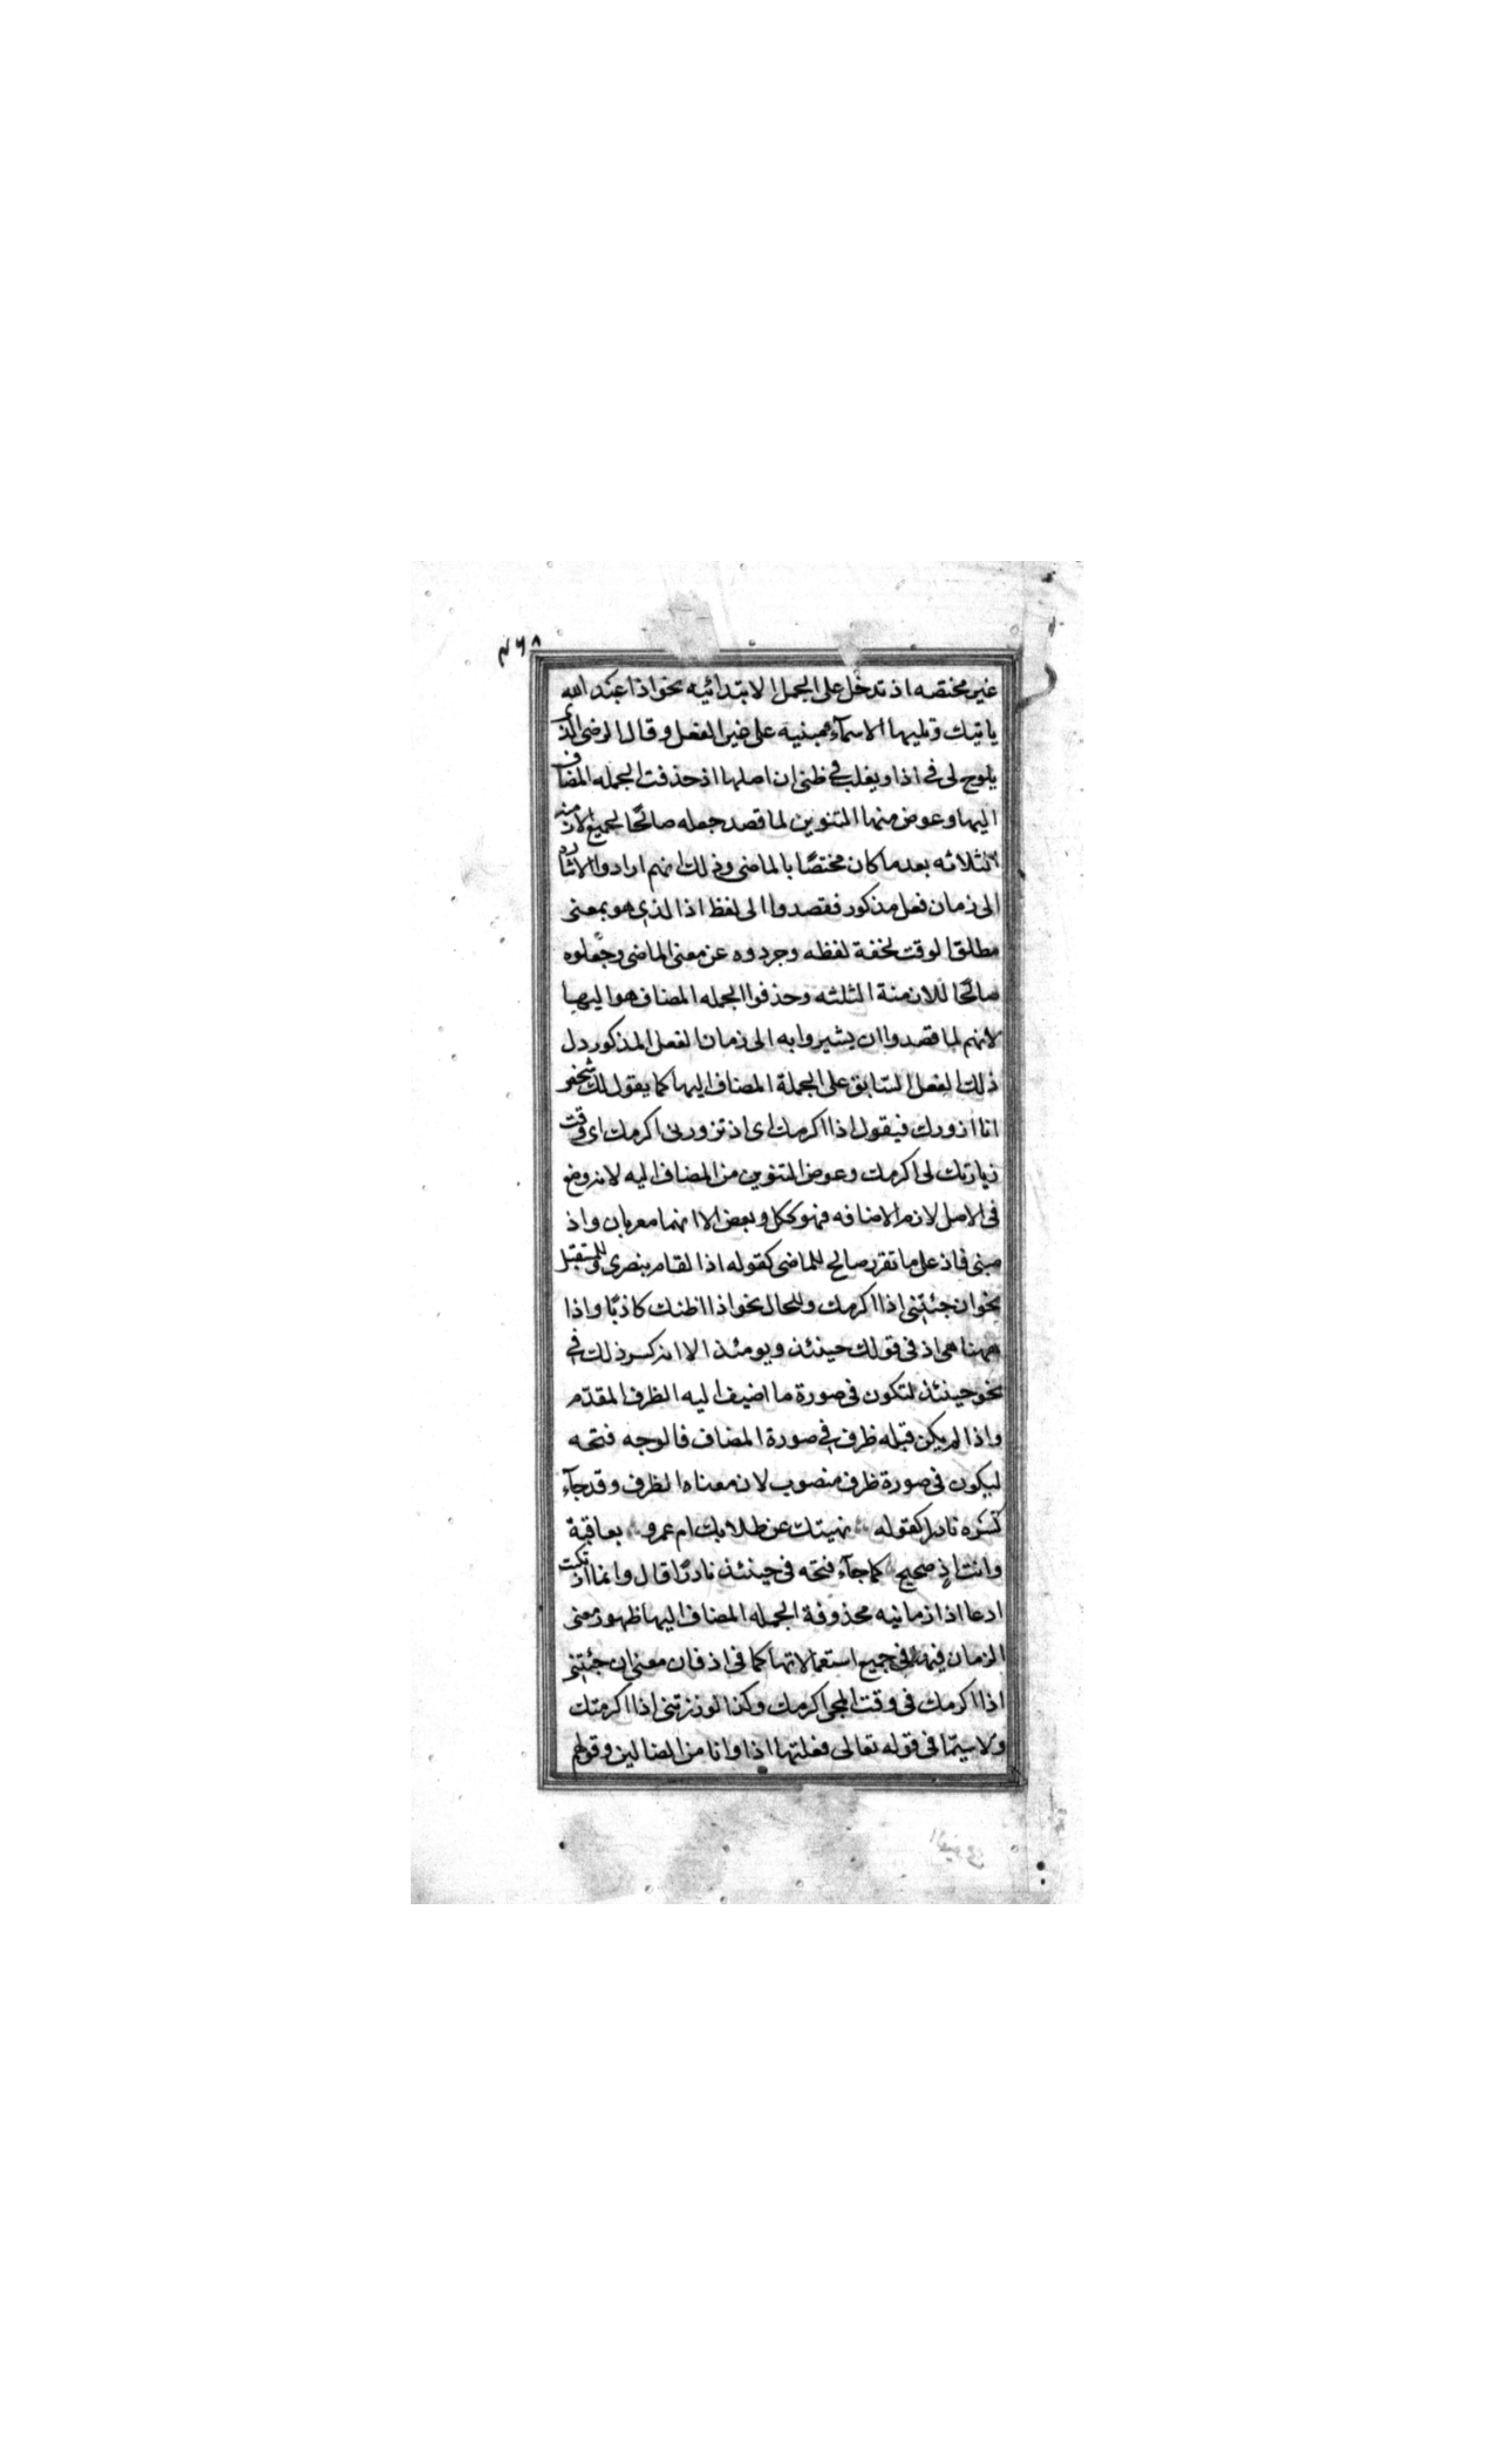 ٤٦٨
غير مختصه اذ تدخل على الجمل الابتدائيه نحو اذا عبد الله
ياتيك وتليها الاسمآء مبنيه على غير الفعل وقال الرضى الذى
يلوح لى فى اذا ويغلب فى ظنى ان اصلها اذ حذفت الجمله المضاف
اليها وعوض منها التنوين لما قصد جعله صالحًا لجميع الازمنه
الثلاثه بعدما كان مختصًا بالماضى وذلك انهم ارادوا الاشارة
الى زمان فعل مذكور فقصدوا الى لفظ اذ الذى هو بمعنى
مطلق الوقت لخفة لفظه وجردوه عن معنى الماضى وجعلوه
صالحًا للازمنة الثلثه وحذفوا الجمله المضاف هو اليها
لانهم لما قصدوا ان يشيروا به الى زمان الفعل المذكور دل
ذلك الفعل السّابق على الجملة المضاف اليها كما يقول لك شخص
انا ازورك فيقول اذا اكرمك اى اذ تزورنى اكرمك اى وقت
زيارتك لى اكرمك وعوض التنوين من المضاف اليه لانه وضع
فى الاصل لازم الاضافه فهو ككل وبعض الا انهما معربان واذ
مبنى فاذ على ما تقرر صالح للماضى كقوله اذا لقام بنصرى وللمستقبل
نحو ان جئتنى اذا اكرمك وللحال نحو اذا اظنك كاذبًا واذا
ههنا هى اذ فى قولك حينئذ ويومئذ الا انه كسر ذلك فى
نحو حينئذ لتكون فى صورة ما اضيف اليه الظرف المقدّم
واذا لم يكن قبله ظرف فى صورة المضاف فالوجه فتحه
ليكون فى صورة ظرف منصوب لان معناه الظرف وقد جآء
كسره نادرا كقوله نهيتك عن طلابك ام عمرو بعاقبة
وانت اذٍ صحيح كما جآء فتحه فى حينئذ نادرًا قال وانما ارتكبت
ادعا اذا زمانيه محذوفة الجمله المضاف اليها ظهور معنى
الزمان فيها فى جميع استعمالاتها كما فى اذ فان معنى ان جئتنى
اذا اكرمك فى وقت المجى اكرمك وكذا لو زرتنى اذا اكرمتك
ولا سيّما فى قوله تعالى فعلتها اذا وانا من الضالين وقولهم